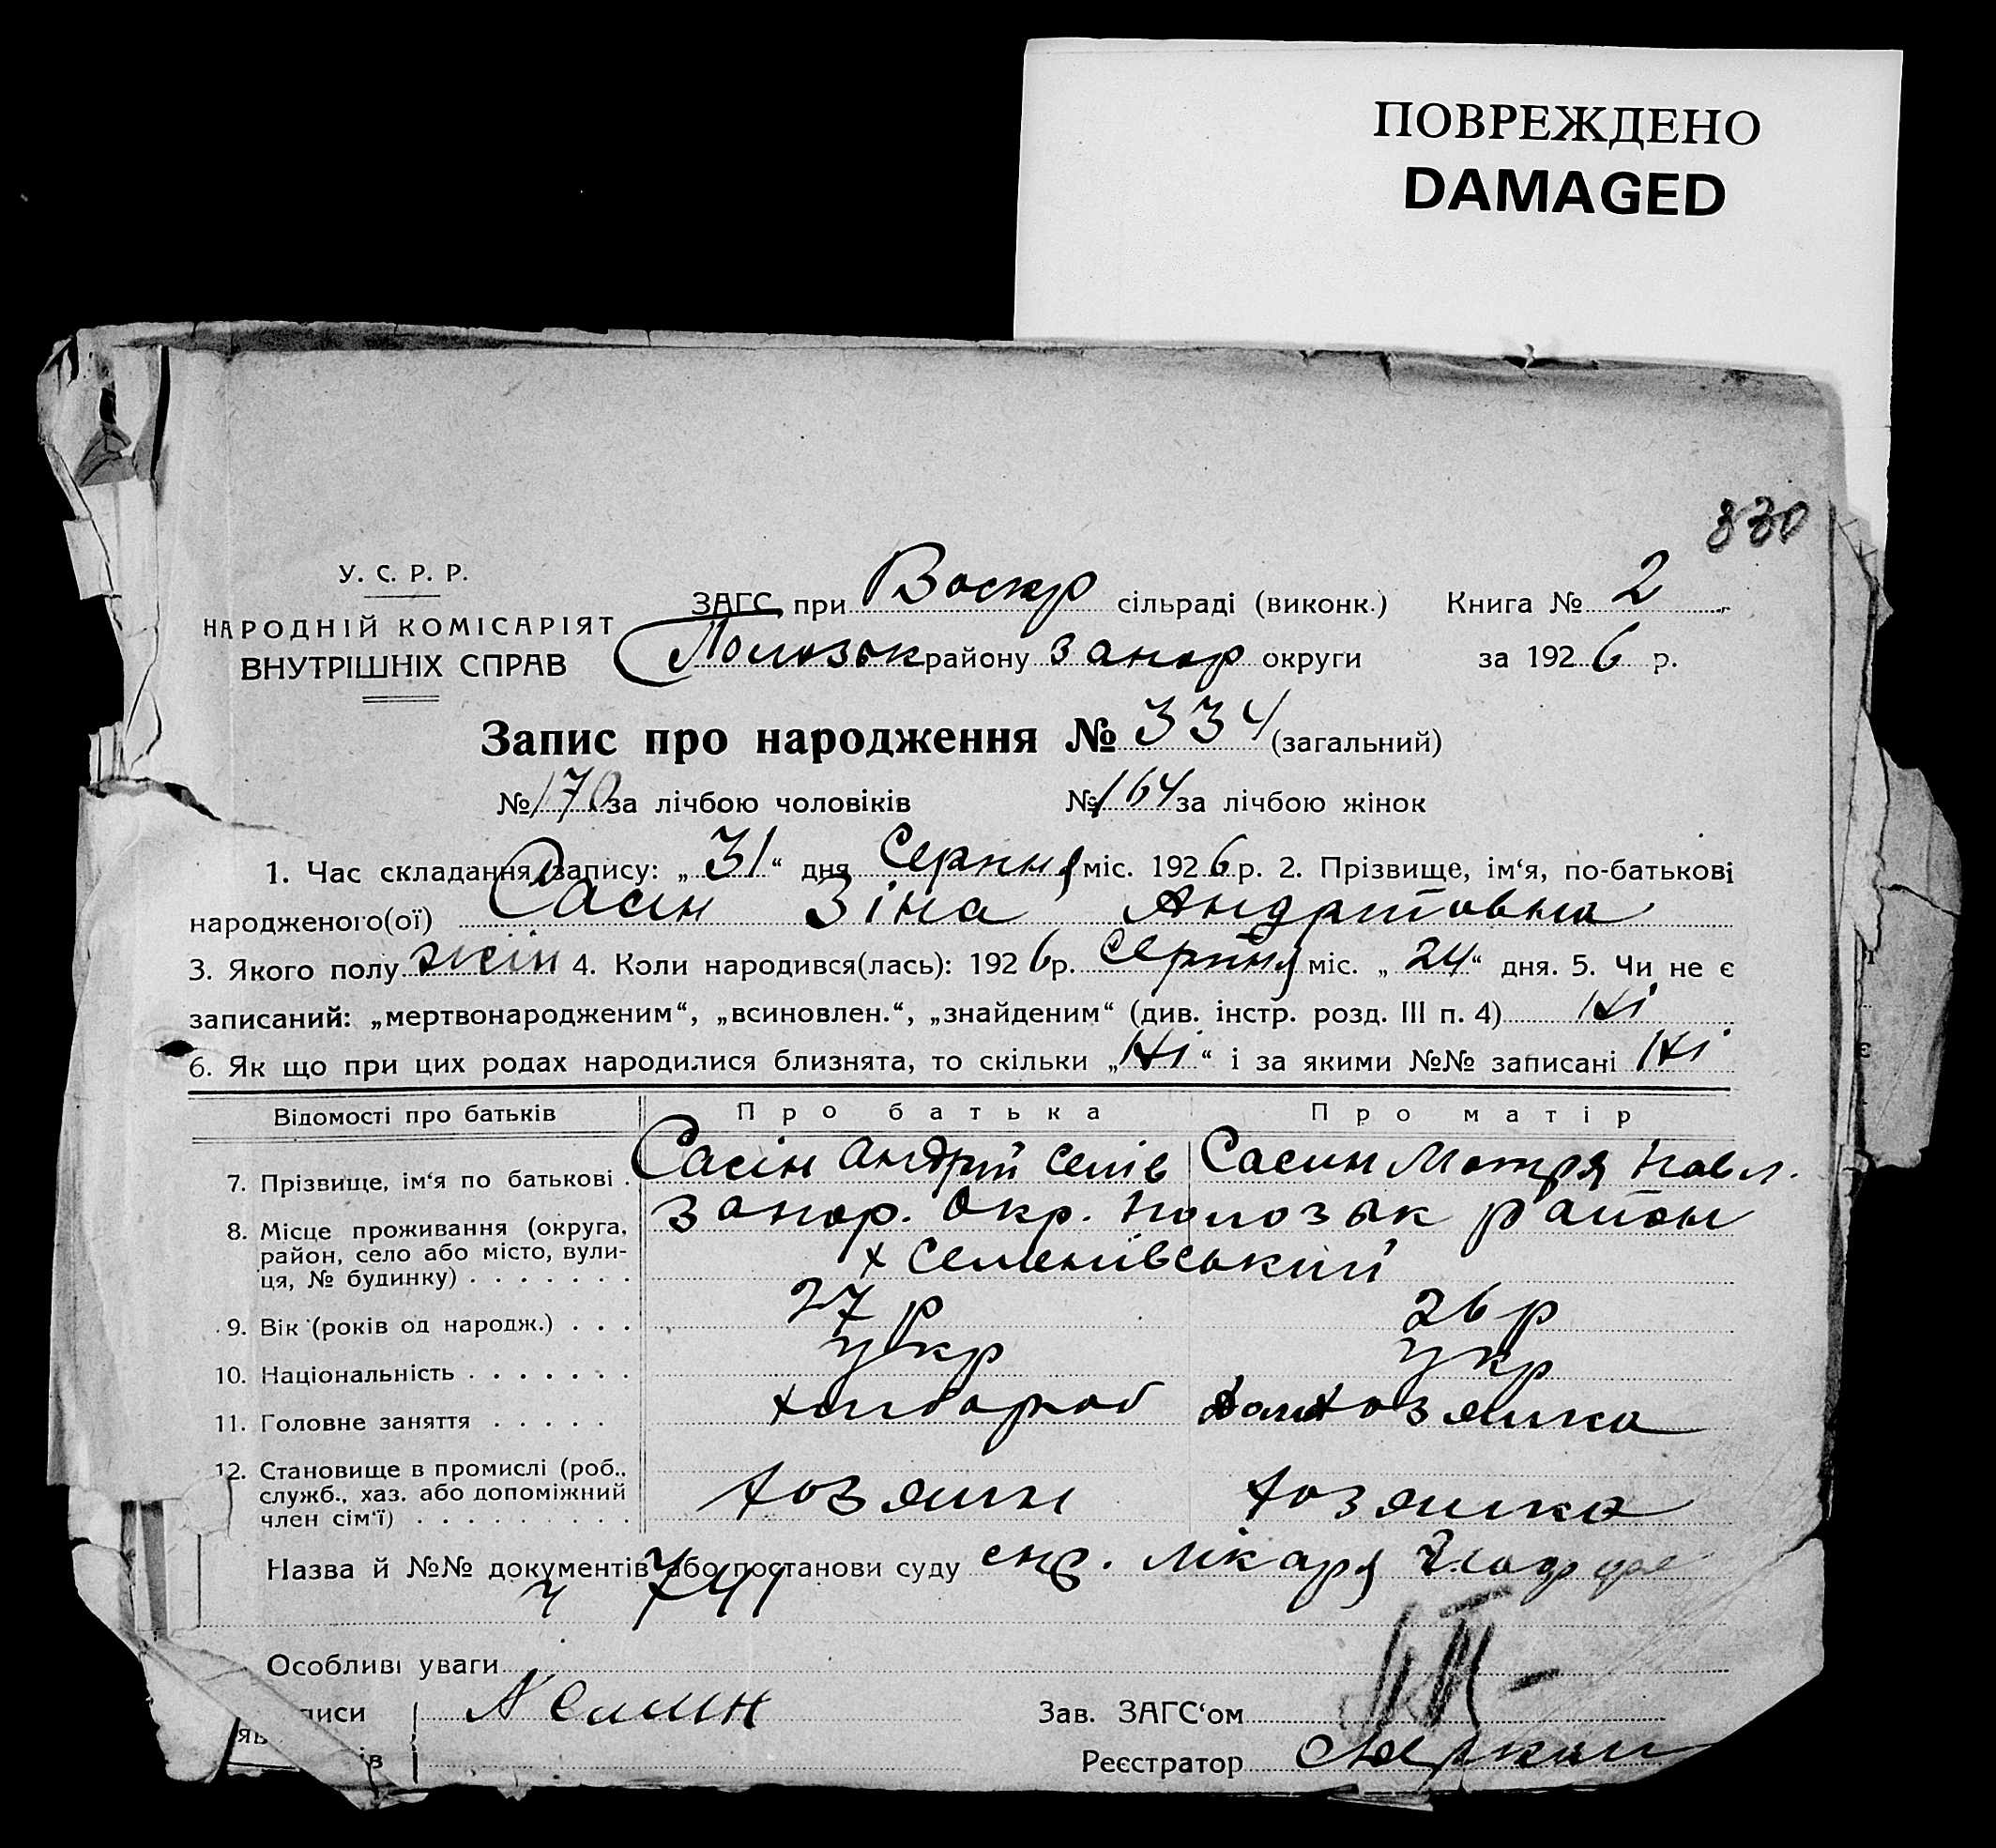 ПОВРЕЖДЕНО
DAMAGED
330
У. С. Р. Р.
НАРОДНІЙ КОМІСАРІЯТ
ВНУТРІШНІХ СПРАВ
ЗАГС при Воскр сільраді (виконк.) Книга № 2
Полозьк району Запор округи за 1926 р.
Запис про народження № 334 (загальний)
№ 170 за лічбою чоловіків № 164 за лічбою жінок
1. Час складання запису: „31“ дня Серпня міс. 1926 р. 2. Прізвище, ім‘я, по-батькові
народженого(ої) Сасін Зіна Андріївна
3. Якого полу жін 4. Коли народився(лась): 1926 р. Серпня міс. „24“ дня. 5. Чи не є
записаний: „мертвонародженим“, „всиновлен.“, „знайденим“ (див. інстр. розд. III п. 4) Ні
6. Як що при цих родах народилися близнята, то скільки „Ні“ і за якими №№ записані Ні
Відомості про батьків Про батька Про матір
7. Прізвище, ім‘я по батькові . Сасін Андрій Семів Сасин Мотря Павл.
8. Місце проживання (округа, район, село або місто, вулиця, № будинку) . . . . . . . Запор. Окр. Полозьк район
х Семенівський
9. Вік (років од народж.) . . . 27 р 26 р
10. Національність . . . . . . . укр укр
11. Головне заняття . . . . . хлібороб домхозяйка
12. Становище в промислі (роб., служб., хаз. або допоміжний член сім‘ї) . . . . . . . . . хозяин хозяйка
Назва й №№ документів або постанови суду спр. лікаря
741
Особливі уваги
писи
яв ів
Зав. ЗАГС‘ом
Реєстратор